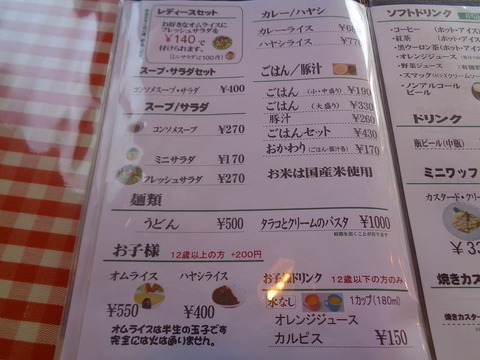 レディースセット
お好きなオムライスに
フレッシュサラダを
¥140で
付けられます。
(ミニサラダは100円)
スープ・サラダセット
コンソメスープ・サラダ ¥400
スープ/サラダ
コンソメスープ ¥270
ミニサラダ ¥170
フレッシュサラダ ¥270
麺類
うどん ¥500
タラコとクリームのパスタ ¥1000
お子様 12歳以上の方 +200円
オムライス ハヤシライス
¥550 ¥400
オムライスは半生の玉子です
完全には火は通りません。
カレー/ハヤシ
カレーライス
ハヤシライス
ごはん/豚汁
ごはん (小・中盛り) ¥190
ごはん (大盛り) ¥330
豚汁 ¥260
ごはんセット ¥430
おかわり (ごはん・豚汁各) ¥170
お米は国産米使用
お子様ドリンク 12歳以下の方のみ
氷なし 1カップ(180ml)
オレンジジュース
カルピス ¥150
ソフトドリンク
・コーヒー (ホット・アイス)
・紅茶 (ホット・アイス
・黒ウーロン茶(ホット・アイ
・オレンジジュース
・野菜ジュース
・スマック
・ノンアルコール
ビール
ドリンク
瓶ビール(中瓶)
ミニワッフ
カスタード・クリー
焼きカス
焼きカスター